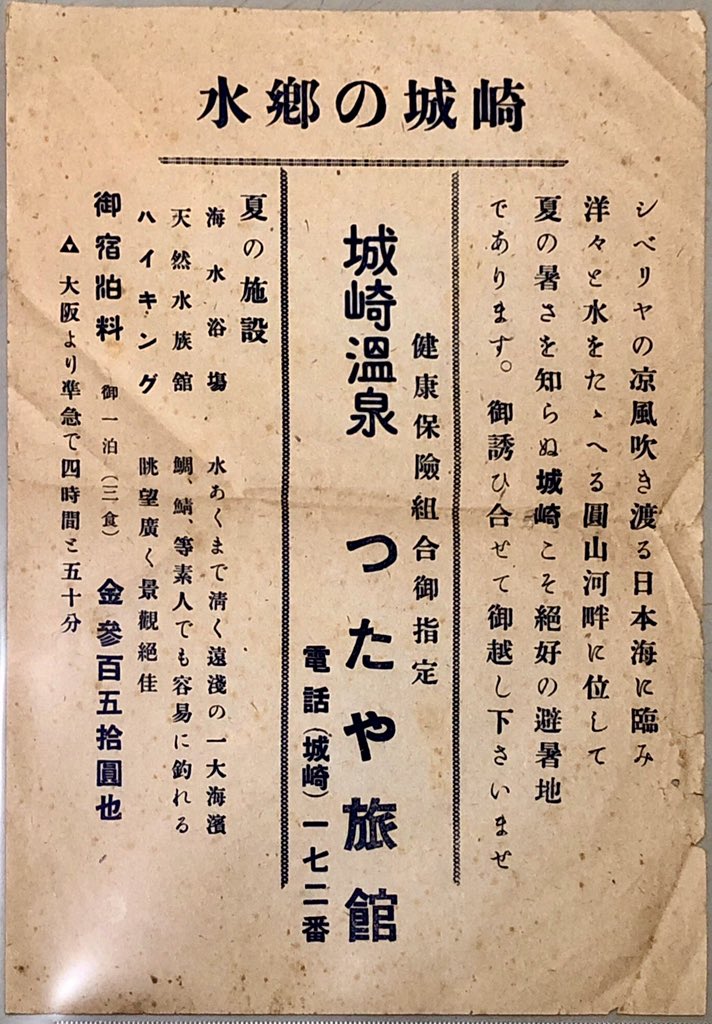 水鄕の城崎
シベリヤの凉風吹き渡る日本海に臨み
洋々と水をたゝへる圓山河畔に位して
夏の暑さを知らぬ城崎こそ絕好の避暑地
であります。御誘ひ合せて御越し下さいませ
健康保險組合御指定
城崎溫泉 つたや旅館
電話(城崎)一七二番
夏の施設
海水浴場 水あくまで淸く遠淺の一大海濱
天然水族館 鯛、鯖、等素人でも容易に釣れる
ハイキング 眺望廣く景觀絕佳
御宿泊料 御一泊(三食) 金參百五拾圓也
▲ 大阪より準急で四時間と五十分